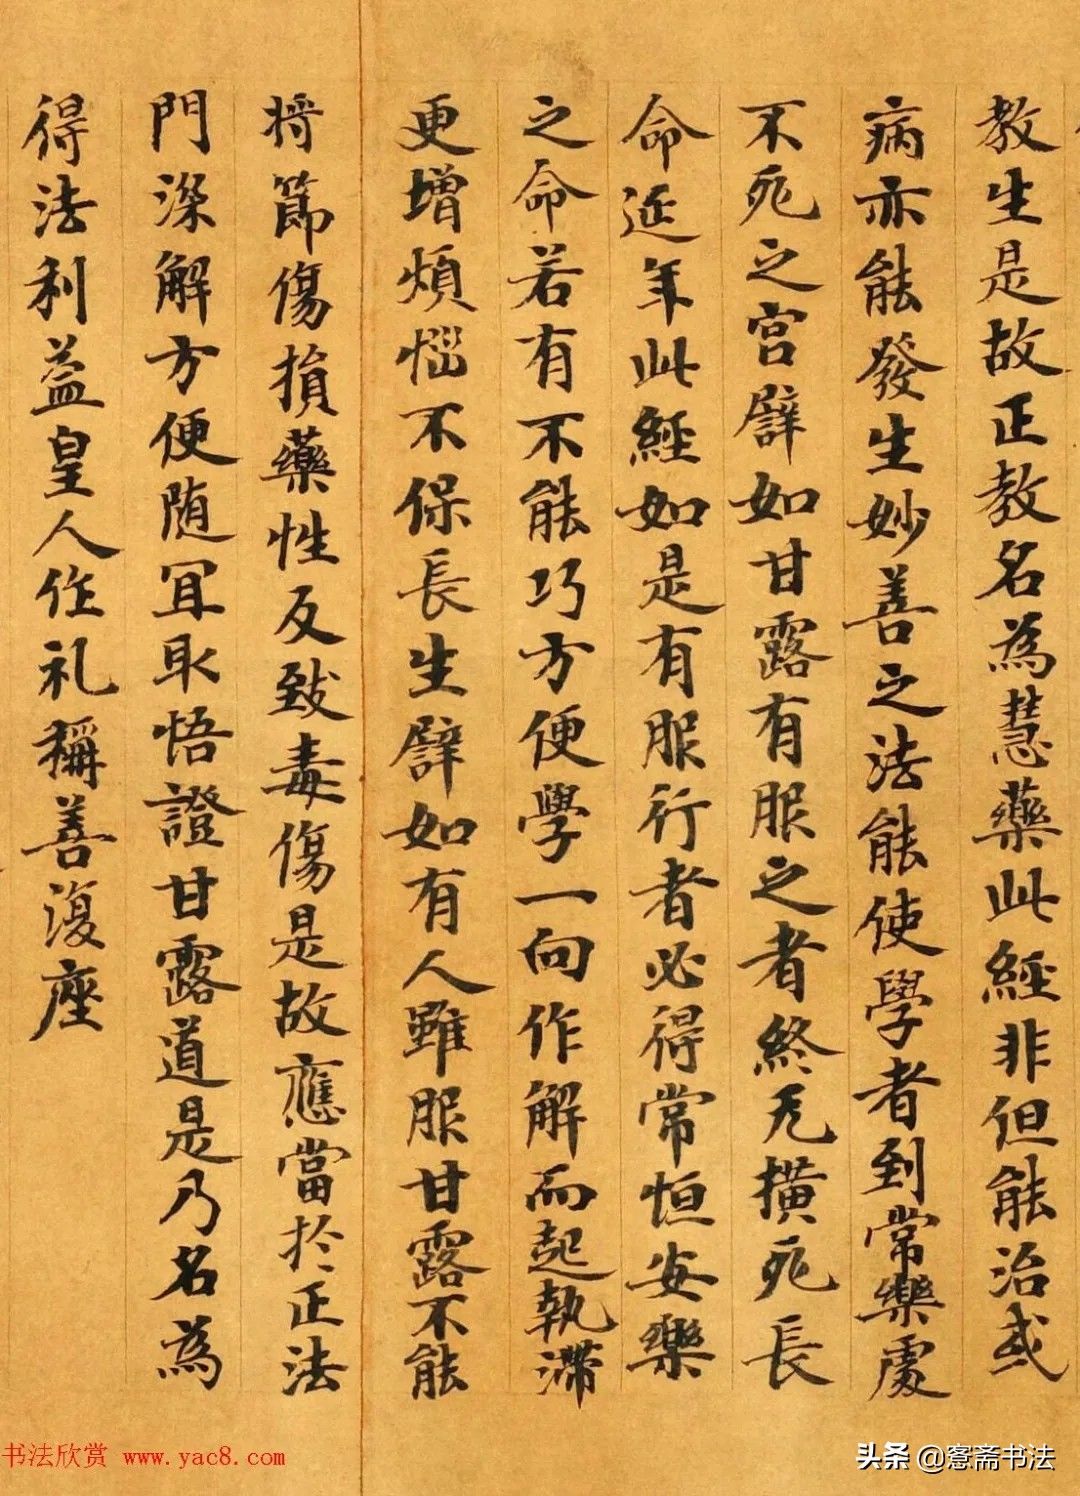 教生是故正教名為慧藥此經非但能治或
病亦能發生妙善之法能使學者到常樂處
不死之宮譬如甘露有服之者終无撗死長
命延年此經如是有服行者必得常恒安樂
之命若有不能巧方便學一向作解而起執滯
更增煩惱不保長生譬如有人雖服甘露不能
将節傷損藥性反致毒傷是故應當於正法
門深解方便随冝取悟證甘露道是乃名為
得法利益皇人作礼稱善復座
书法欣赏 www.yac8.com
头条 @愙斋书法